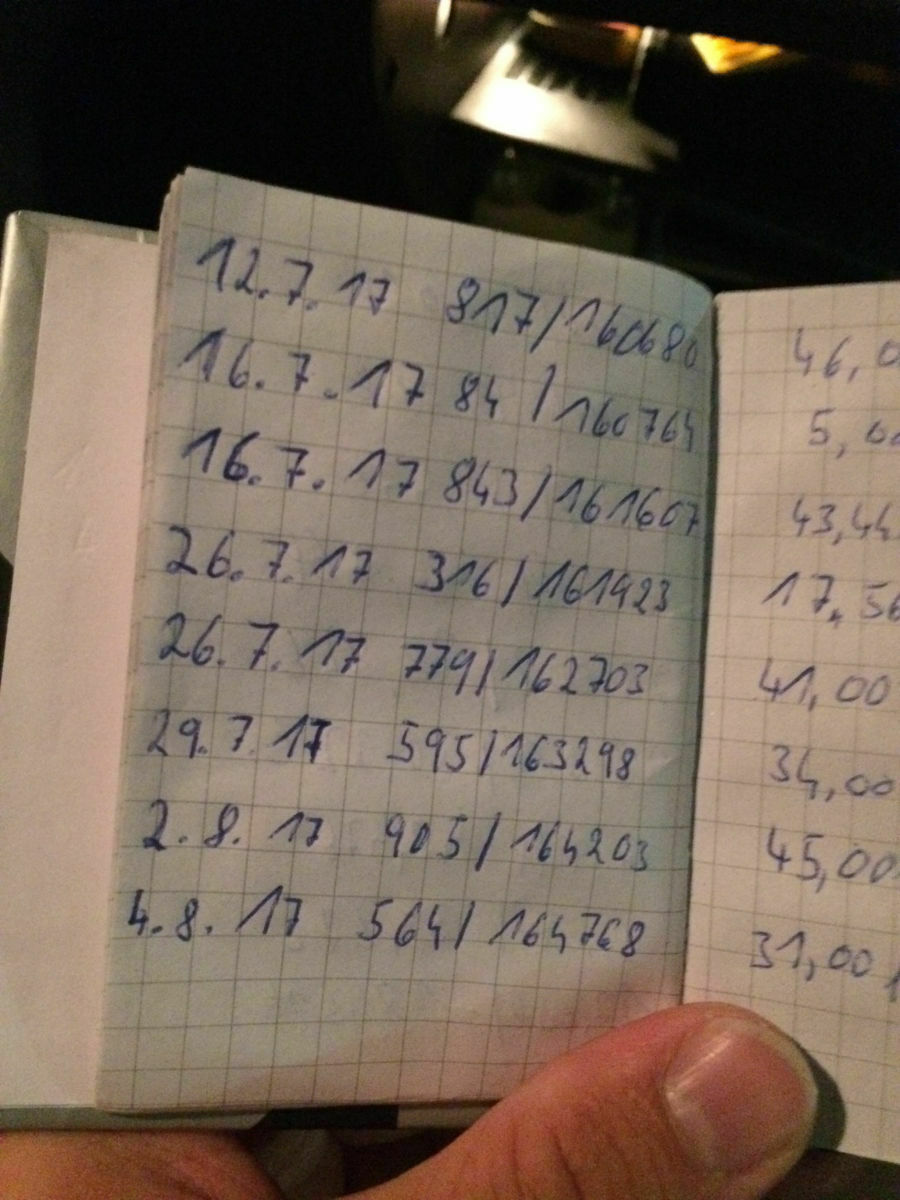 12.7.17 817/160680
16.7.17 84/160764
16.7.17 843/161607
26.7.17 316/161923
26.7.17 779/162703
29.7.17 595/163298
2.8.17 905/164203
4.8.17 564/164768
46,0
5,00
43,44
17,56
41,00
34,00
45,00
31,00/